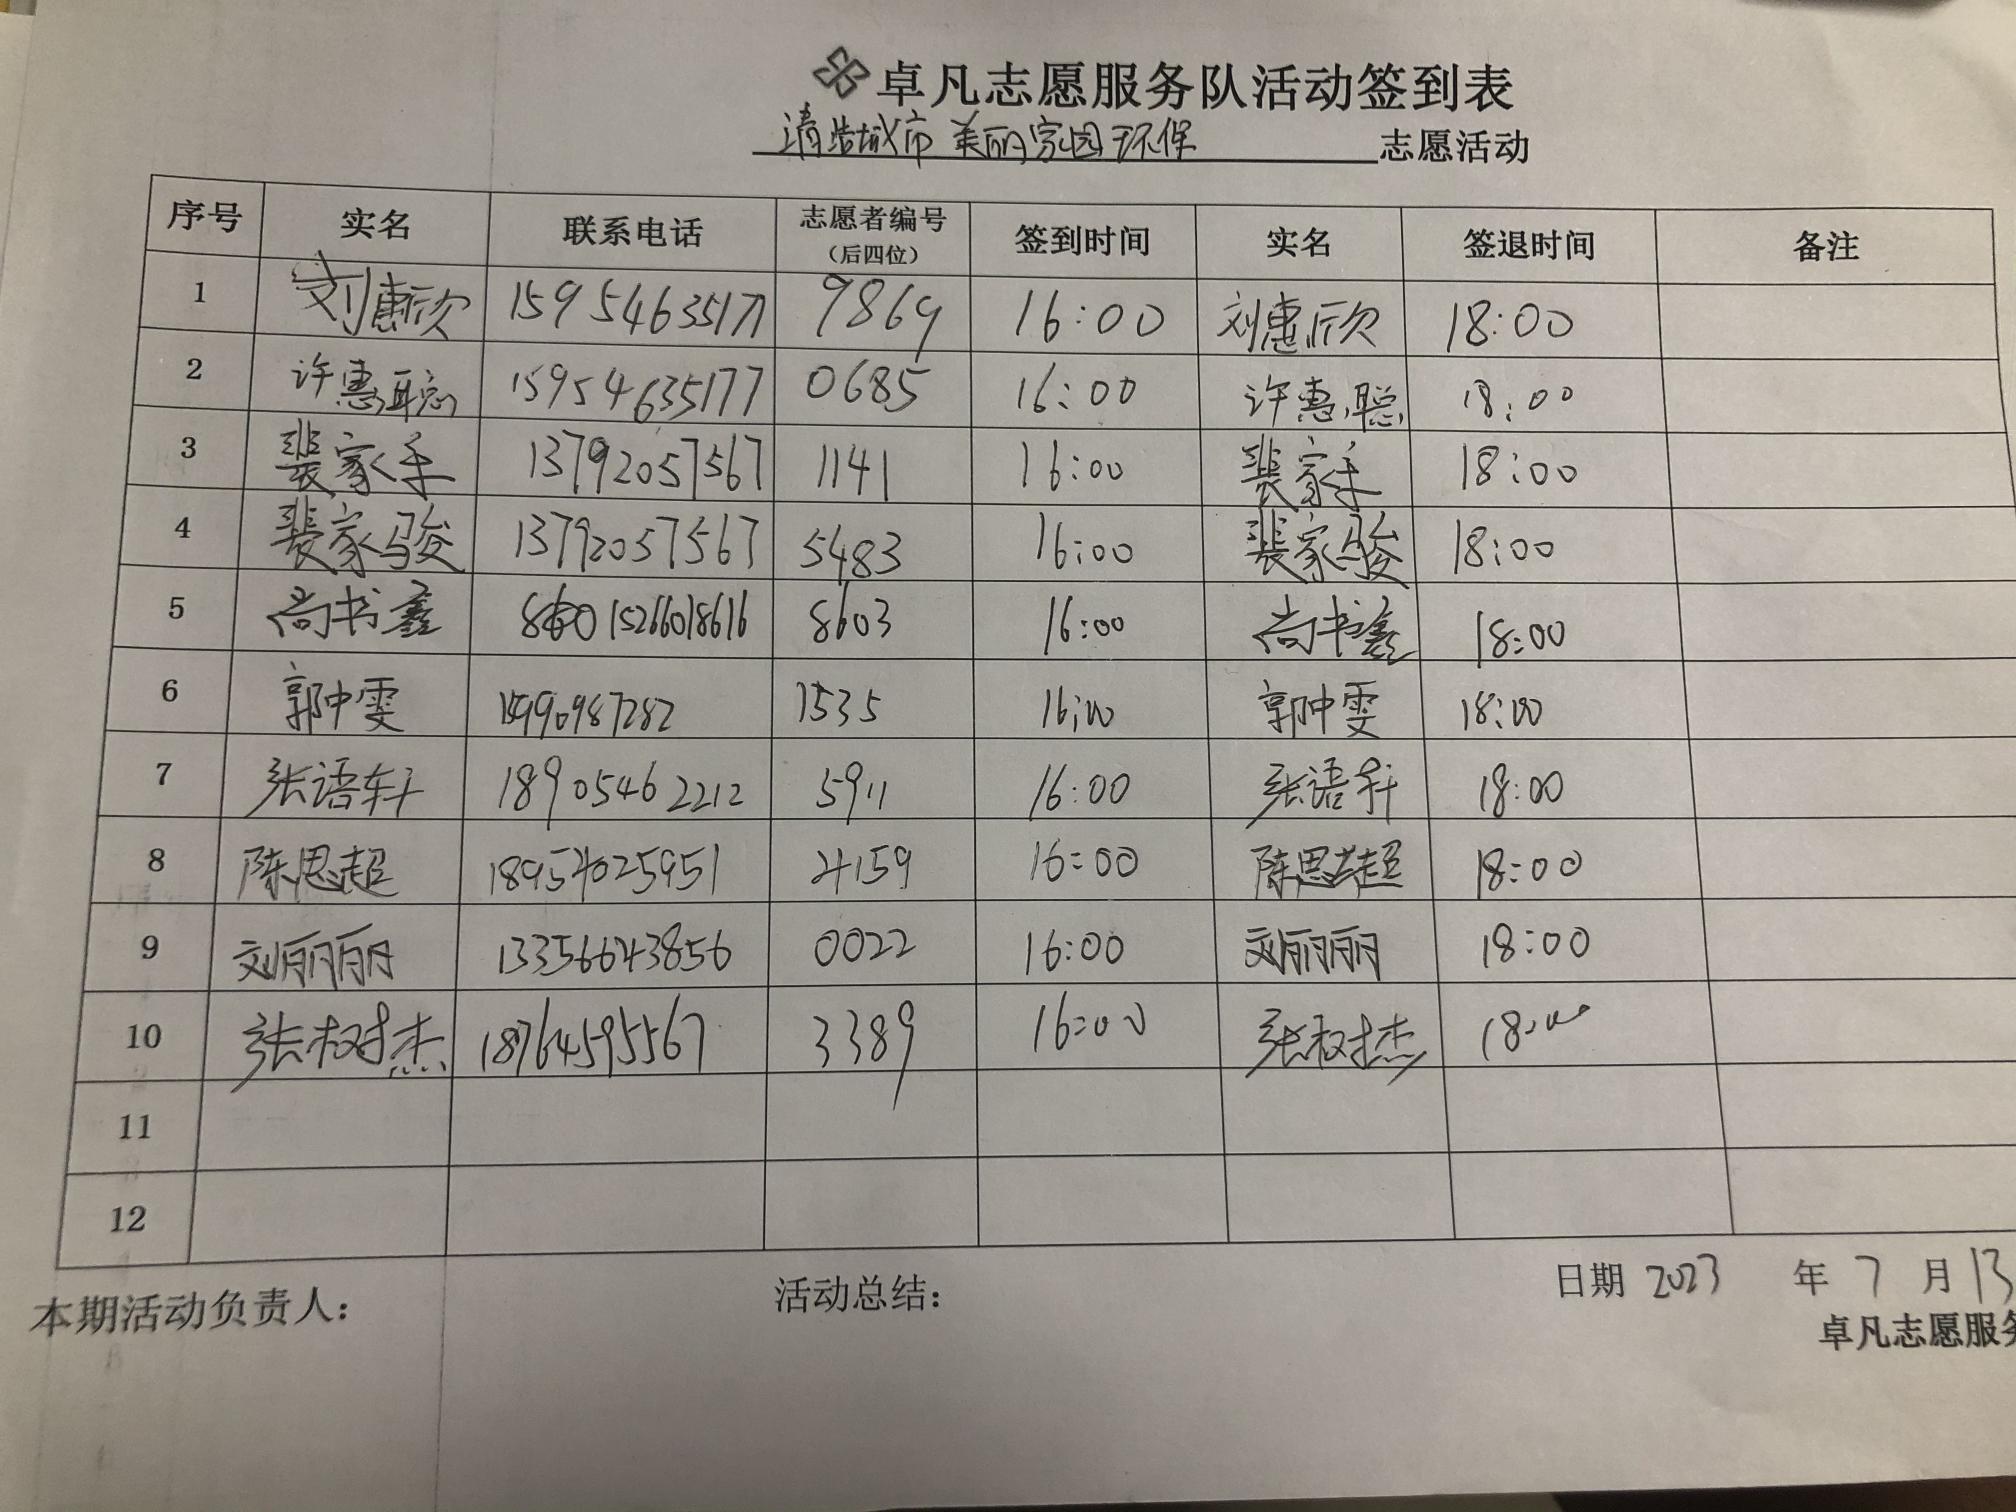 卓凡志愿服务队活动签到表
清洁城市 美丽家园环保 志愿活动
序号 实名 联系电话 志愿者编号（后四位） 签到时间 实名 签退时间 备注
1 刘惠欣 15954635177 9869 16:00 刘惠欣 18:00
2 许惠聪 15954635177 0685 16:00 许惠聪 18:00
3 裴家 13792057567 1141 16:00 裴家 18:00
4 裴家骏 13792057567 5483 16:00 裴家骏 18:00
5 尚书鑫 15266018616 8603 16:00 尚书鑫 18:00
6 郭中雯 1535 16:00 郭中雯 18:00
7 张语轩 18905462212 5911 16:00 张语轩 18:00
8 陈思超 18954025951 4159 16:00 陈思超 18:00
9 刘丽丽 13356643856 0022 16:00 刘丽丽 18:00
10 张树杰 18764595567 3389 16:00 张树杰 18:00
11
12
本期活动负责人： 活动总结： 日期 2023 年 7 月 13
卓凡志愿服务